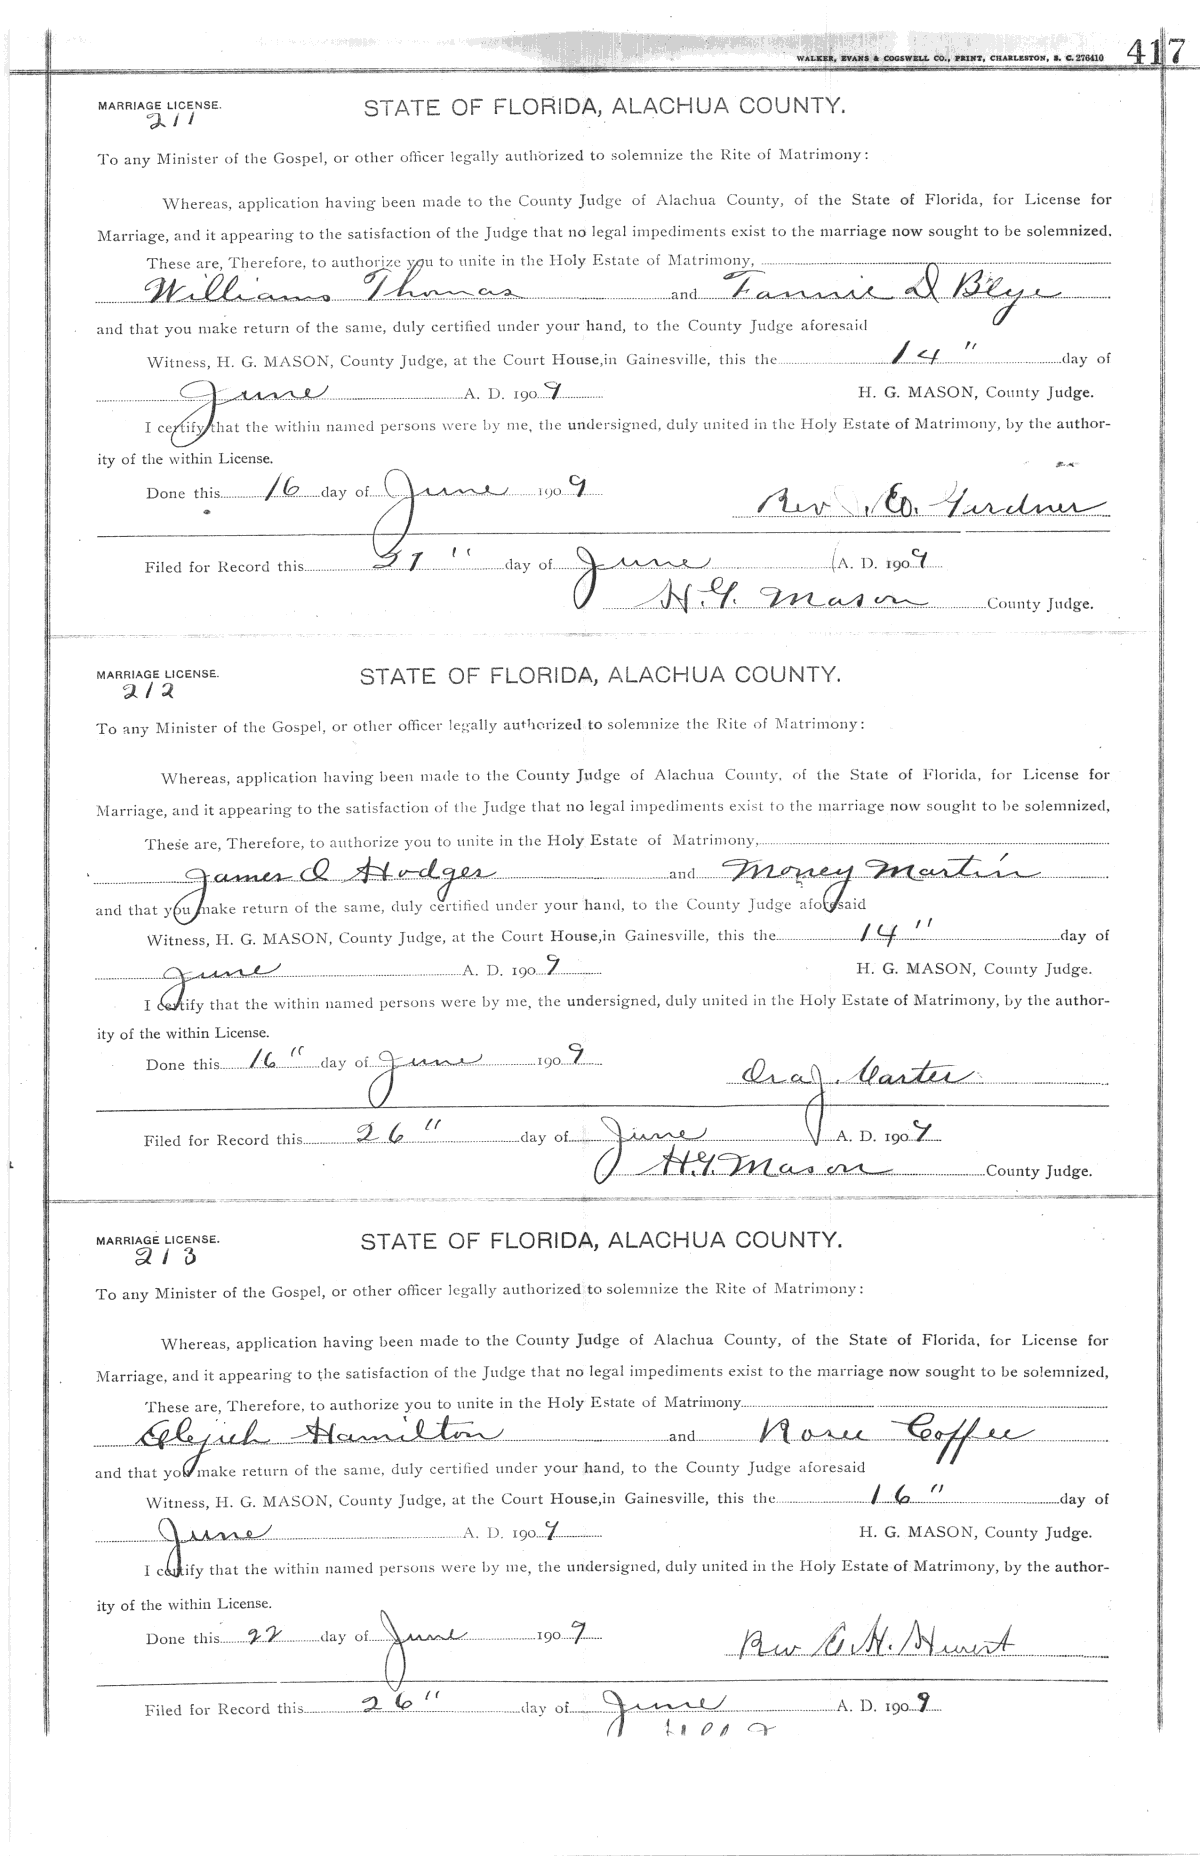 WALKER, EVANS & COGSWELL CO., PRINT, CHARLESTON, S. C. 276410 417
MARRIAGE LICENSE. STATE OF FLORIDA, ALACHUA COUNTY.
211
To any Minister of the Gospel, or other officer legally authorized to solemnize the Rite of Matrimony:
Whereas, application having been made to the County Judge of Alachua County, of the State of Florida, for License for
Marriage, and it appearing to the satisfaction of the Judge that no legal impediments exist to the marriage now sought to be solemnized.
These are, Therefore, to authorize you to unite in the Holy Estate of Matrimony,
Williams Thomas and Fannie D Blye
and that you make return of the same, duly certified under your hand, to the County Judge aforesaid
Witness, H. G. MASON, County Judge, at the Court House, in Gainesville, this the 14" day of
June A. D. 1909 H. G. MASON, County Judge.
I certify that the within named persons were by me, the undersigned, duly united in the Holy Estate of Matrimony, by the author-
ity of the within License.
Done this 16 day of June 1909
Rev Girdner
Filed for Record this " day of June A. D. 1909
H. G. Mason County Judge.
MARRIAGE LICENSE. STATE OF FLORIDA, ALACHUA COUNTY.
212
To any Minister of the Gospel, or other officer legally authorized to solemnize the Rite of Matrimony:
Whereas, application having been made to the County Judge of Alachua County, of the State of Florida, for License for
Marriage, and it appearing to the satisfaction of the Judge that no legal impediments exist to the marriage now sought to be solemnized,
These are, Therefore, to authorize you to unite in the Holy Estate of Matrimony,
James D Hodges and Money Martin
and that you make return of the same, duly certified under your hand, to the County Judge aforesaid
Witness, H. G. MASON, County Judge, at the Court House, in Gainesville, this the 14" day of
June A. D. 1909 H. G. MASON, County Judge.
I certify that the within named persons were by me, the undersigned, duly united in the Holy Estate of Matrimony, by the author-
ity of the within License.
Done this 16" day of June 1909
Ora J. Carter
Filed for Record this 26" day of June A. D. 1909
H. G. Mason County Judge.
MARRIAGE LICENSE. STATE OF FLORIDA, ALACHUA COUNTY.
213
To any Minister of the Gospel, or other officer legally authorized to solemnize the Rite of Matrimony:
Whereas, application having been made to the County Judge of Alachua County, of the State of Florida, for License for
Marriage, and it appearing to the satisfaction of the Judge that no legal impediments exist to the marriage now sought to be solemnized,
These are, Therefore, to authorize you to unite in the Holy Estate of Matrimony
Elejieh Hamilton and Rosee Coffee
and that you make return of the same, duly certified under your hand, to the County Judge aforesaid
Witness, H. G. MASON, County Judge, at the Court House, in Gainesville, this the 16" day of
June A. D. 1909 H. G. MASON, County Judge.
I certify that the within named persons were by me, the undersigned, duly united in the Holy Estate of Matrimony, by the author-
ity of the within License.
Done this 22 day of June 1909
Rev H.
Filed for Record this 26" day of June A. D. 1909